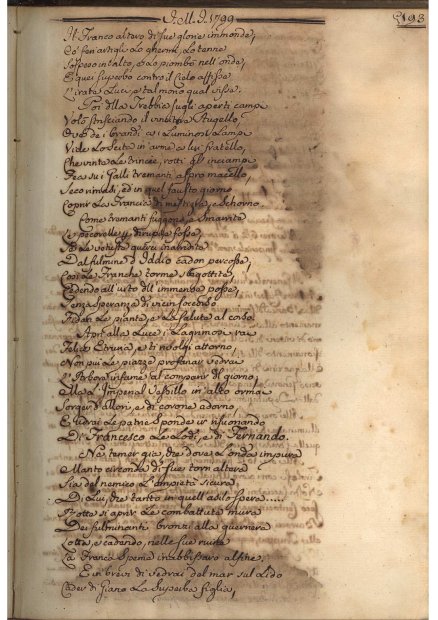 I. M. I. 1799
193
Il Franco altero di sue glorie immonde,
Co' fen artigli Lo ghermì, Lo tenne
Sospeso in alto, e Lo piombò nell'onde,
E quei superbo contro il Cielo affisse
L'irate Luci, e tal morì qual visse.
Poi della Trebbia sugli aperti campi
Volò strisciando il vindice Augello,
Ove de i brandi, a i Luminosi Lampi
Vide Lo Scita in arme a lui fratello,
Che vinte Le trincee, rotti gl'inciampi
Fea su i Galli tremanti aspro macello,
Seco rivolsi, ed in quel fausto giorno
Coprir La Francia di mestizia, e Schorno.
Come tremanti fuggono, e smarrite
Le pecorelle
Se Le
Dal fulmine d'Iddio cadon percosse,
Così Le Franche torme sbigottite,
Cedendo all'urto dell'immense posse,
Senza speranza di vicin soccorso
Fidan Le piante, e La salute al corso.
Apri alla Luce i Lagrimosi rai
Felice Etruria, e ti rivolgi attorno,
Non più Le piazze profanar vedrai
L'Arbore infame al comparir del giorno,
Ma L'Imperial Vessillo in alto ormai
Sorger d'allori, e di corone adorno,
E udrai Le patrie Sponde ir risuonando
Di Francesco Le Lodi, e di Fernando.
Nè temer già, che dove L'onda impura
Manto circonda di sue torri altera
Sia del nemico L'empietà sicura,
Di Lui, che tanto in quell'asilo spera
Rotta si apre Le combattute mura
Dei fulminanti bronzi alla guerriera
Lotta, e cadendo, nelle sue ruine
La Franca Speme inabbissaro alfine.
E in brevi dì vedrai del mar sul Lido
Cader di Giano La superba figlia,